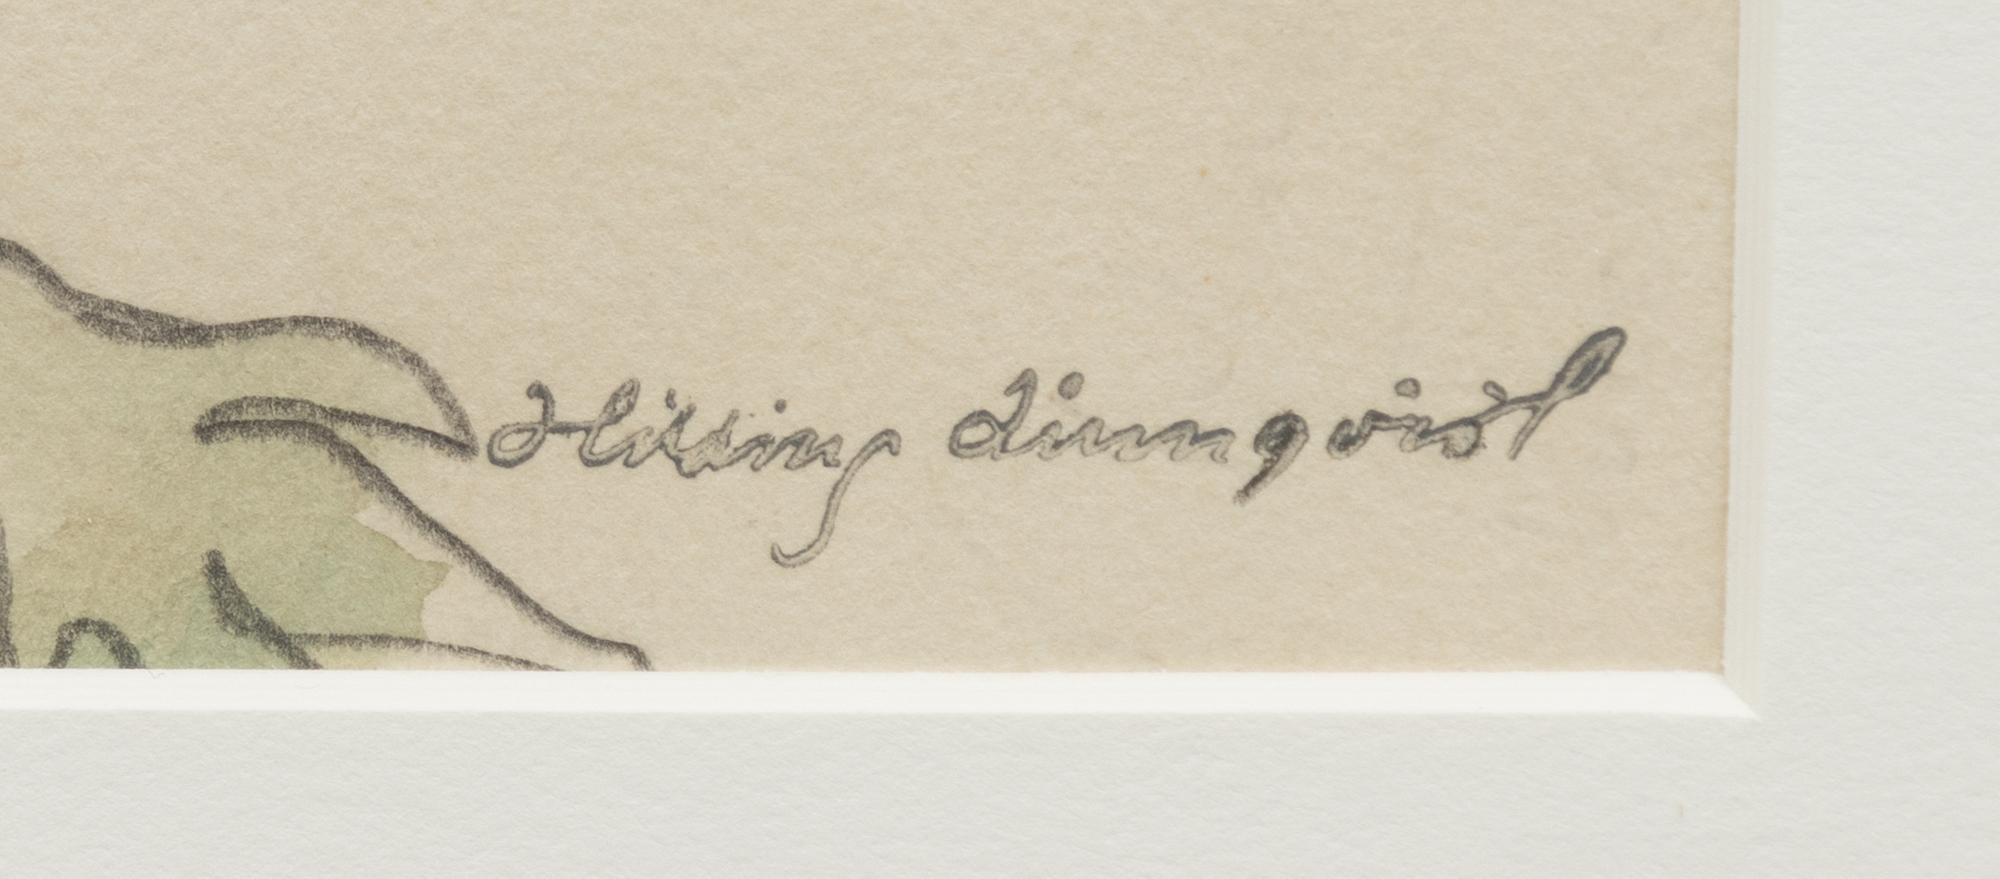 Hilding Linnqvist